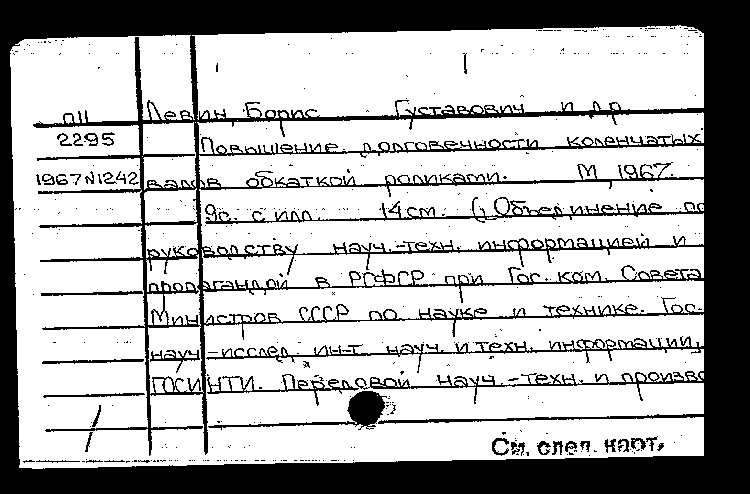 П11 Левин, Борис Густавович и др.
2295 Повышение долговечности коленчатых
1967N1242 валов обкаткой роликами. М, 1967.
9с. с илл. 14см. (Объединение по
руководству науч.-техн. информацией и
пропагандой в РСФСР при Гос. ком. Совета
Министров СССР по науке и технике. Гос.
науч-исслед. ин-т науч. и техн. информации,
ГОСИНТИ. Передовой науч.-техн. и произво
См. след. карт.